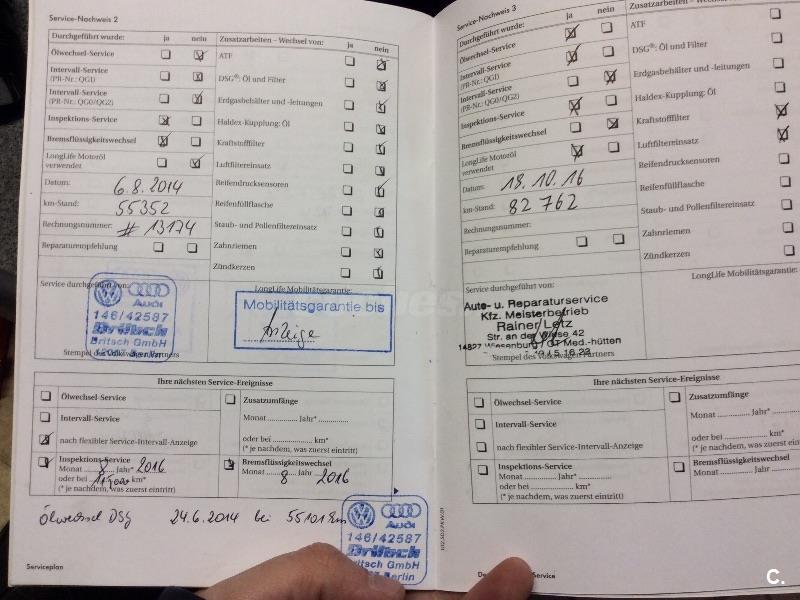 Service-Nachweis 2
Durchgeführt wurde: ja nein
Ölwechsel-Service
Intervall-Service
(PR-Nr.: QG1)
Intervall-Service
(PR-Nr.: QG0/QG2)
Inspektions-Service
Bremsflüssigkeitswechsel
LongLife Motoröl
verwendet
Datum: 6.8.2014
km-Stand: 55352
Rechnungsnummer: # 13174
Reparaturempfehlung
Zusatzarbeiten – Wechsel von: ja nein
ATF
DSG®: Öl und Filter
Erdgasbehälter und -leitungen
Haldex-Kupplung: Öl
Kraftstofffilter
Luftfiltereinsatz
Reifendrucksensoren
Reifenfüllflasche
Staub- und Pollenfiltereinsatz
Zahnriemen
Zündkerzen
Service durchgeführt von:
Audi
146/42587
Britsch
Britsch GmbH
Stempel des Volkswagen Partners
LongLife Mobilitätsgarantie:
Mobilitätsgarantie bis
Anzeige
Ihre nächsten Service-Ereignisse
Ölwechsel-Service
Intervall-Service
nach flexibler Service-Intervall-Anzeige
Inspektions-Service
Monat 8 Jahr* 2016
oder bei km*
(* je nachdem, was zuerst eintritt)
Zusatzumfänge
Monat Jahr*
oder bei km*
(* je nachdem, was zuerst eintritt)
Bremsflüssigkeitswechsel
Monat 8 Jahr 2016
Ölwechsel DSG 24.6.2014 bei 55101 km
Audi
146/42587
Britsch
Britsch GmbH
Berlin
Serviceplan
Service-Nachweis 3
Durchgeführt wurde: ja nein
Ölwechsel-Service
Intervall-Service
(PR-Nr.: QG1)
Intervall-Service
(PR-Nr.: QG0/QG2)
Inspektions-Service
Bremsflüssigkeitswechsel
LongLife Motoröl
verwendet
Datum: 18.10.16
km-Stand: 82 762
Rechnungsnummer:
Reparaturempfehlung
Zusatzarbeiten – Wechsel
ATF
DSG®: Öl und Filter
Erdgasbehälter und -leitungen
Haldex-Kupplung: Öl
Kraftstofffilter
Luftfiltereinsatz
Reifendrucksensoren
Reifenfüllflasche
Staub- und Pollenfiltereinsatz
Zahnriemen
Zündkerzen
Service durchgeführt von:
Auto- u. Reparaturservice
Kfz. Meisterbetrieb
Rainer Letz
Str. an der Wiese 42
14827 Wiesenburg / OT Med.-hütten
Stempel des Volkswagen Partners
LongLife Mobilitätsgarantie:
Ihre nächsten Service-Ereignisse
Ölwechsel-Service
Intervall-Service
nach flexibler Service-Intervall-Anzeige
Inspektions-Service
Monat Jahr*
oder bei km*
(* je nachdem, was zuerst eintritt)
Zusatzumfänge
Monat Jahr*
oder bei km*
(* je nachdem, was zuerst eintritt)
Bremsflüssigkeitswechsel
Monat Jahr
Service
C.